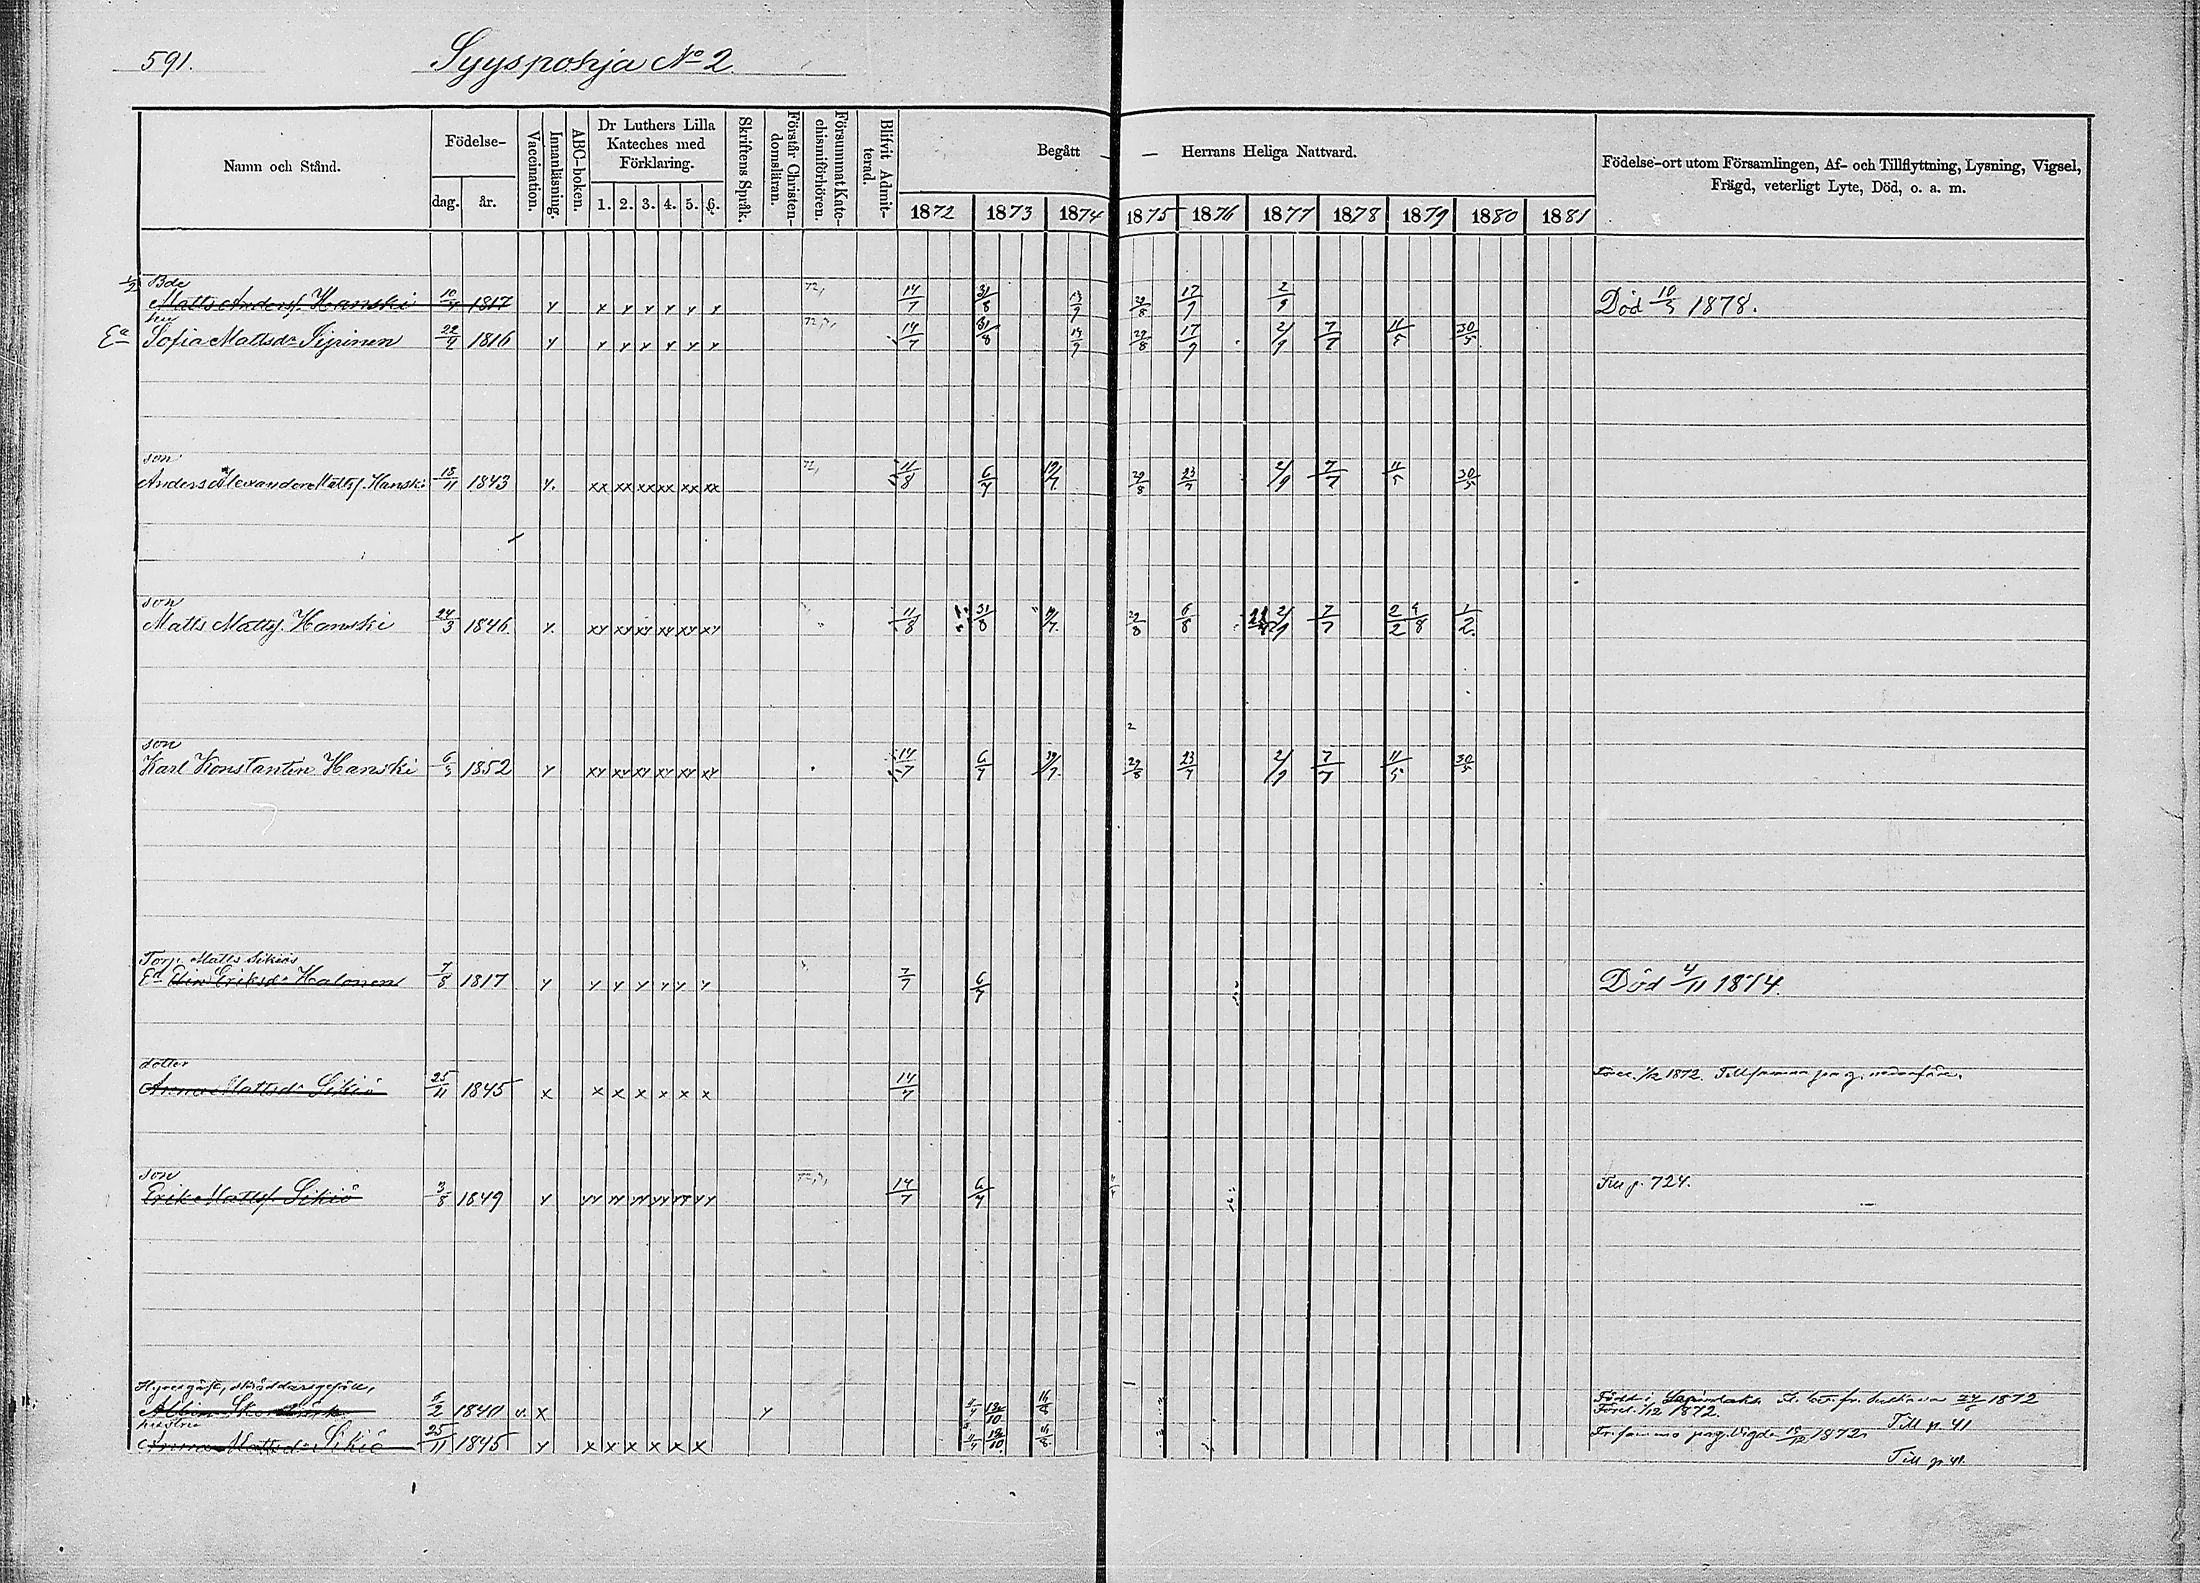 591. Syyspohja No 2
Namn och Stånd. Födelse- dag. år. Vaccination. Innanläsning. ABC-boken. Dr Luthers Lilla Kateches med Förklaring. 1. 2. 3. 4. 5. 6. Skriftens Språk. Förstår Christendomsläran. Försummat Katechismiförhören. Blifvit Admitterad. Begått — Herrans Heliga Nattvard. Födelse-ort utom Församlingen, Af- och Tillflyttning, Lysning, Vigsel, Frägd, veterligt Lyte, Död, o. a. m.
1872 1873 1874 1875 1876 1877 1878 1879 1880 1881
1/2 Bde
Matts Anderss. Hanski 10/4 1817 y y y y y y y 72, 14/7 31/8 13/9 29/8 17/9 2/9 Död 10/3 1878.
Ea Sofia Mattsdr 22/2 1816 y y y y y y y 14/7 31/8 13/9 29/8 17/9 2/9 7/7 11/5 30/5
son
Anders Alexander Mattss. Hanski 18/11 1843 y. xx xx xx xx xx xx 72, 11/8 6/7 19/7 29/8 23/7 2/9 7/7 11/5 30/5
son
Matts Mattss. Hanski 24/3 1846 y. xy xy xy xy xy xy 11/8 31/8 19/7 29/8 6/8 2/9 7/7 2/2 4/8 1/2
son
Karl Konstantin Hanski 6/3 1852 y xy xy xy xy xy xy 14/7 6/7 19/7 29/8 23/7 2/9 7/7 11/5 30/5
Torp. Matts Sikiös
Ea Elin Eriksdr Halonen 7/8 1817 y y y y y y y 7/7 6/7 Död 4/11 1874.
dotter
Anna Mattsdr Sikiö 25/11 1845 x x x x x x x 14/7 1/12 1872.
son
Erik Mattss. Sikiö 3/8 1849 y yy yy yy yy yy yy 14/7 6/7 Till p. 724.
Hyresgäst, skräddaregesäll,
Albin 6/2 1840 v. x y 12/10 16/8 Född i 24/6 1872
1/12 1872. Till p 41
hustru
Anna Mattsdr Sikiö 25/11 1845 y x x x x x x 12/10 Vigde 1872
Till p 41.